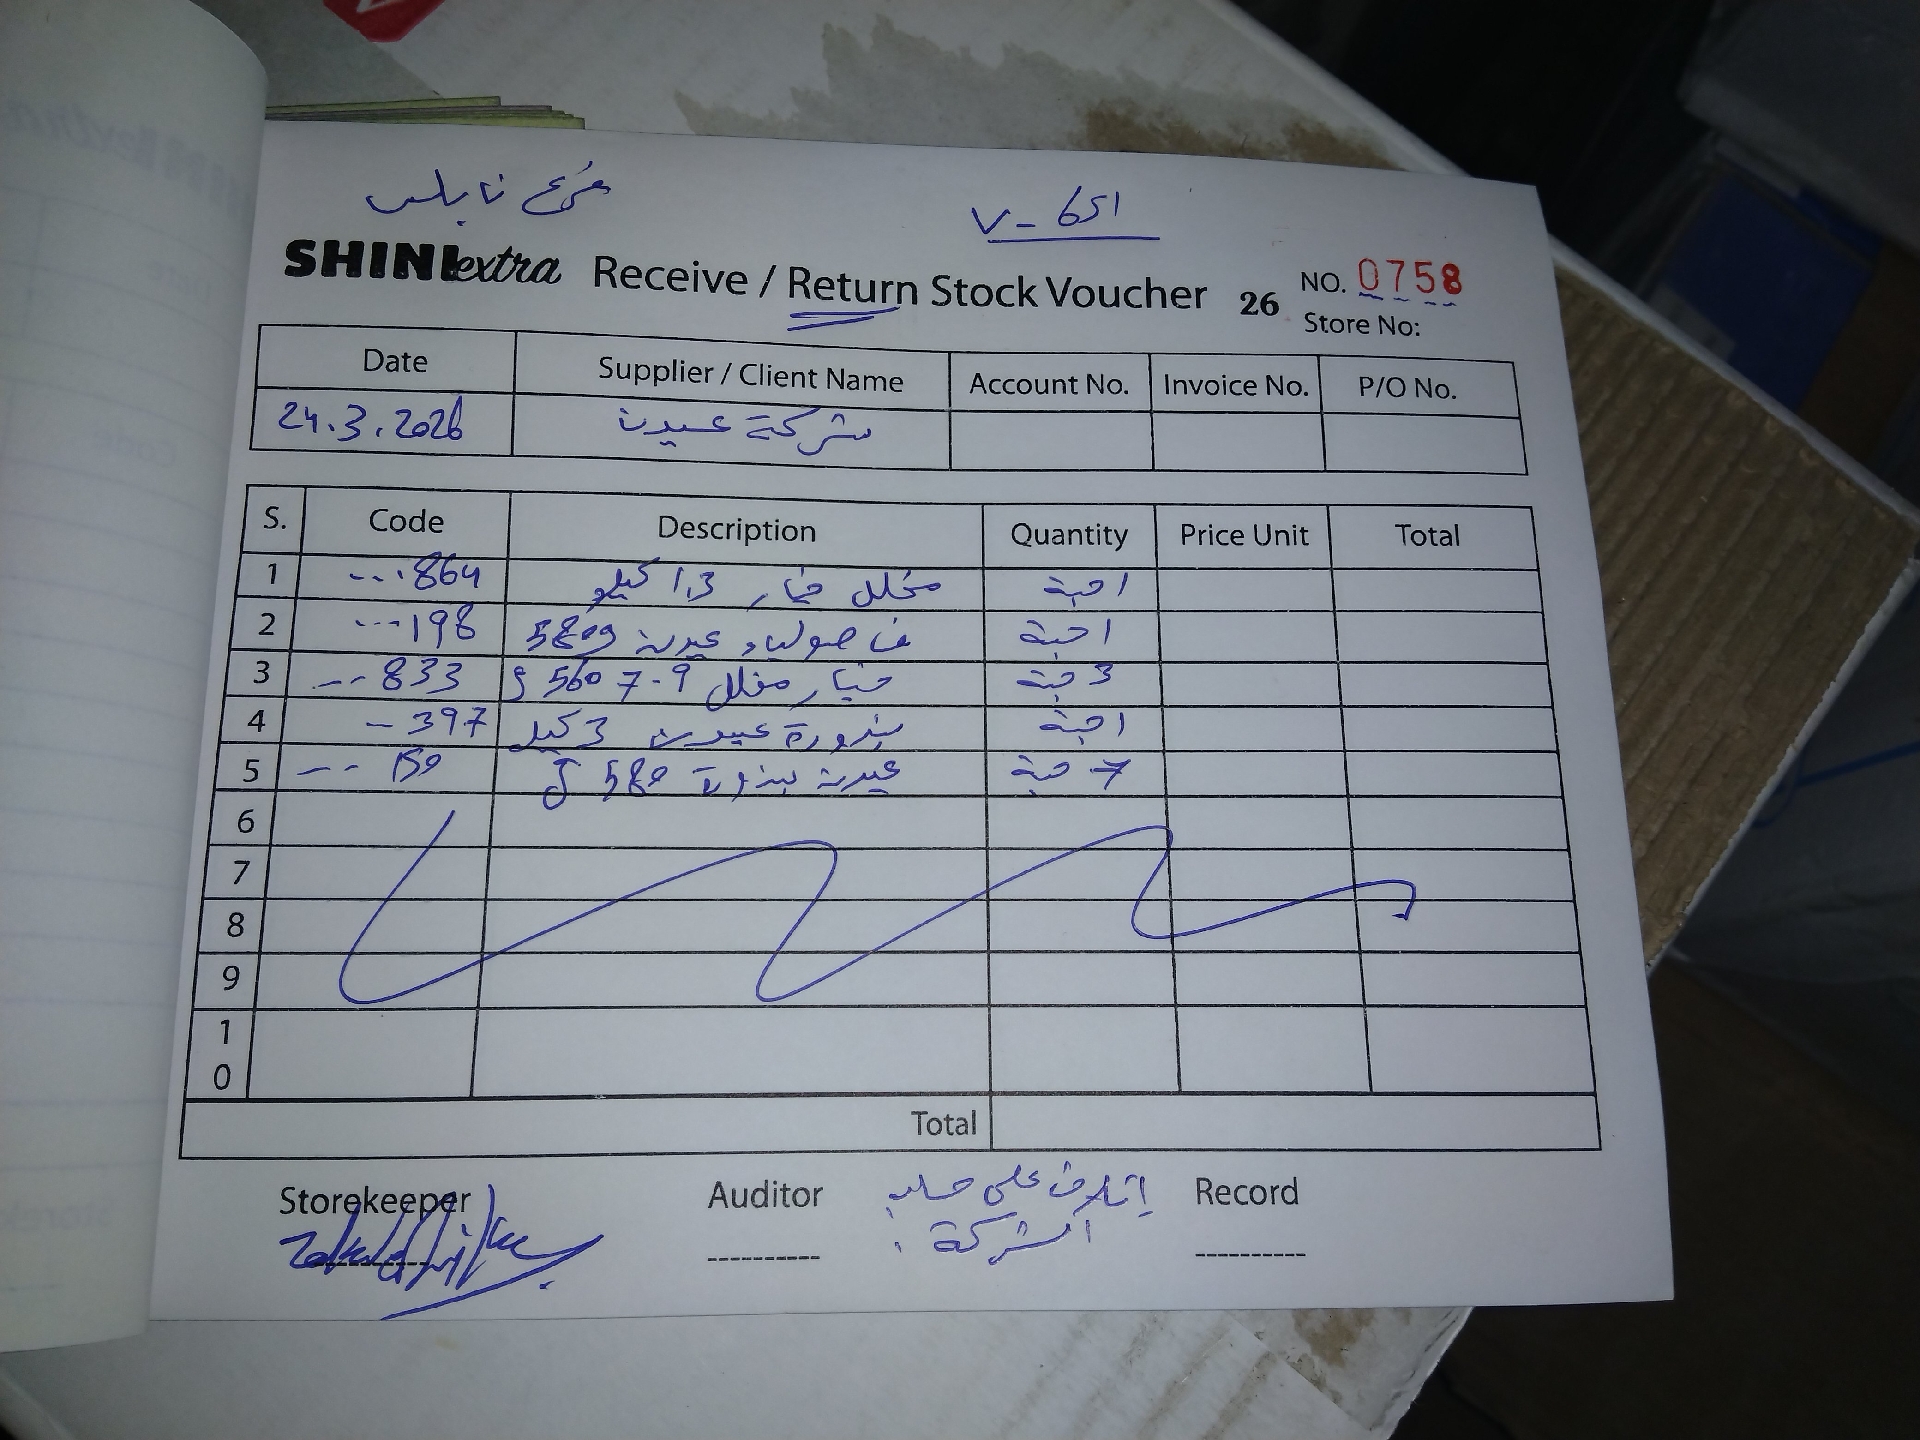 فرع نابلس
V- 651
SHINI extra Receive / Return Stock Voucher 26 NO. 0758
Store No:
Date Supplier / Client Name Account No. Invoice No. P/O No.
24.3.2026 شركة عيدن
S. Code Description Quantity Price Unit Total
1 ---864 مخلل خيار 1.3 كيلو 1 حبة
2 ---198 فاصولياء عيدن 580g 1 حبة
3 ---833 خيار مخلل 7-9 560 g 3 حبة
4 -397 بندورة عيدن 3 كيلو 1 حبة
5 --- 150 عيدن بندورة 580 g 7 حبة
6
7
8
9
10
Total
Storekeeper Auditor Record
إتلاف على حساب
الشركة.